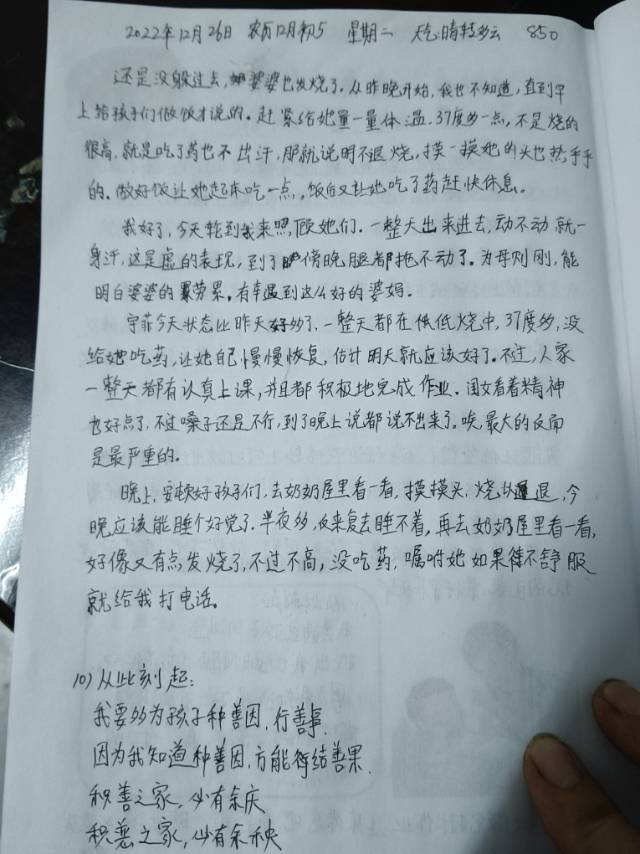 2022年12月26日 农历12月初5 星期二 天气:晴转多云 850
还是没躲过去,婆婆也发烧了。从昨晚开始,我也不知道,直到早
上给孩子们做饭才说的。赶紧给她量一量体温,37度多一点,不是烧的
很高,就是吃了药也不出汗,那就说明不退烧,摸一摸她的头也热乎乎
的。做好饭让她起来吃一点,饭后又让她吃了药赶快休息。
我好了,今天轮到我来照顾她们。一整天出来进去,动不动就一
身汗,这是虚的表现,到了傍晚腿都拖不动了。为母则刚,能
明白婆婆的劳累。有幸遇到这么好的婆妈。
宁菲今天状态比昨天好多了,一整天都在低低烧中,37度多,没
给她吃药,让她自己慢慢恢复,估计明天就应该好了。不过,人家
一整天都有认真上课,并且都积极地完成作业。闺女看着精神
也好点了,不过嗓子还是不行,到了晚上说都说不出来了。唉,最大的反而
是最严重的。
晚上,安顿好孩子们,去奶奶屋里看一看,摸摸头,烧退,今
晚应该能睡个好觉了。半夜多,反来复去睡不着,再去奶奶屋里看一看,
好像又有点发烧了,不过不高,没吃药,嘱咐她如果得不舒服
就给我打电话。
10)从此刻起:
我要多为孩子种善因,行善事,
因为我知道种善因,方能得结善果.
积善之家,必有余庆
积恶之家,必有余殃